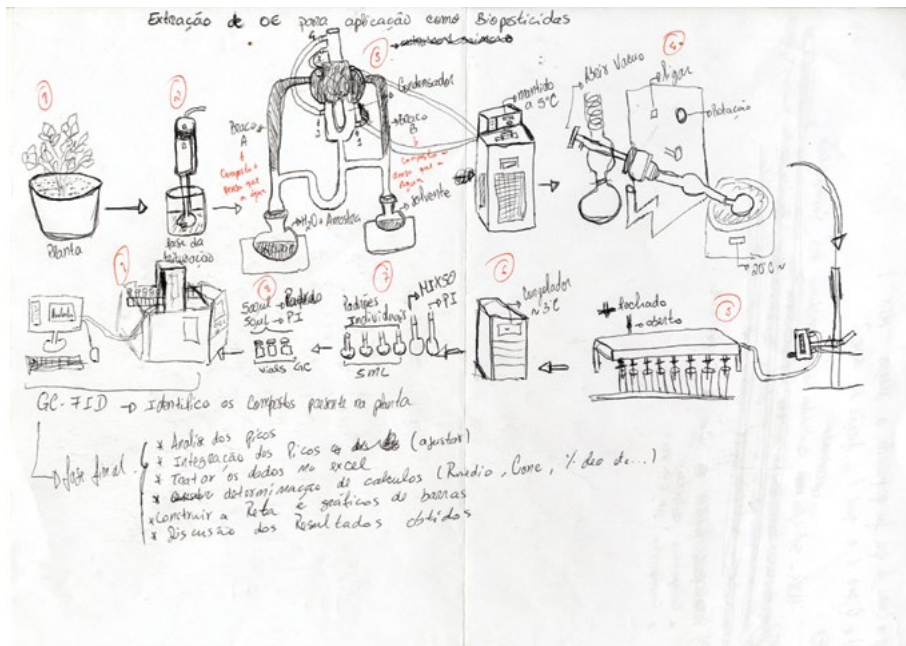 Extração de OE para aplicação como Biopesticidas
1
Planta
2
fase da trituração
3
Condensador
Braço A
Composto + denso que a água
Braço B
Composto - denso que a água
H2O + Amostra
Solvente
mantido a 5ºC
4
Abrir Vacuo
Ligar
Rotação
5
fechado
aberto
6
Congelador
~ 3ºC
7
Padrões Individuais
MIX
PI
5ML
8
50µL → Padrão
50µL → PI
viais GC
9
GC-FID → Identifico os Compostos presente na planta
fase final
* Analise dos picos
* Integração dos Picos (ajustar)
* Tratar os dados no excel
* determinação de calculos (Rmédio, Conc, % de etc...)
* Construir a Reta e gráficos de barras
* Discussão dos Resultados obtidos